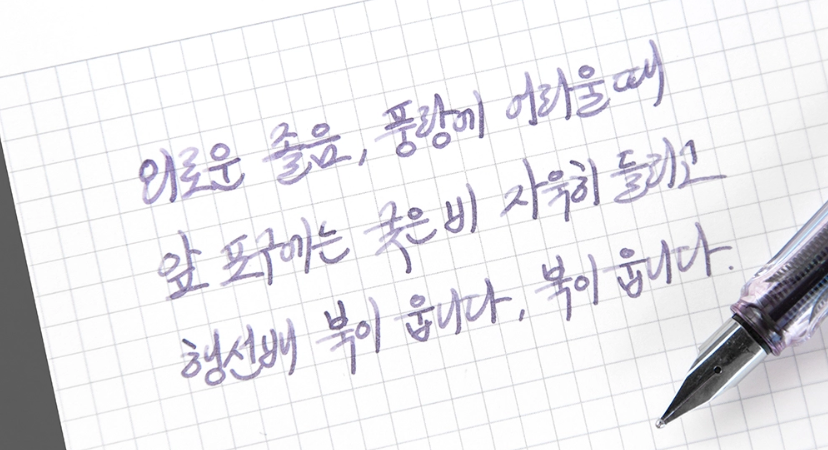 외로운 졸음, 풍랑에 어리울때
앞 포구에는 궂은비 자욱히 들리고
행선배 북이 웁니다, 북이 웁니다.